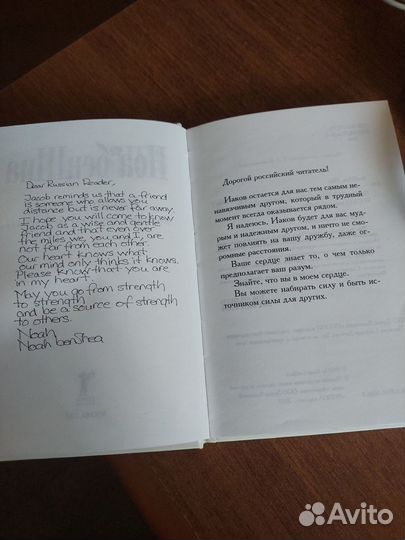 Dear Russian Reader,
Jacob reminds us that a friend
is someone who allows you
distance but is never far away.
I hope you will come to know
Jacob as a wise and gentle
friend and that even over
the miles we, you and I, are
not far from each other.
Our heart knows what
our mind only thinks it knows.
Please know that you are
in my heart.
May you go from strength
to strength
and be a source of strength
to others.
Noah
Noah benShea
Дорогой российский читатель!
Иаков остается для вас тем самым не-
навязчивым другом, который в трудный
момент всегда оказывается рядом.
Я надеюсь, Иаков будет для вас муд-
рым и надежным другом, и ничто не смо-
жет повлиять на вашу дружбу, даже ог-
ромные расстояния.
Ваше сердце знает то, о чем только
предполагает ваш разум.
Знайте, что вы в моем сердце.
Вы можете набирать силу и быть ис-
точником силы для других.
Avito